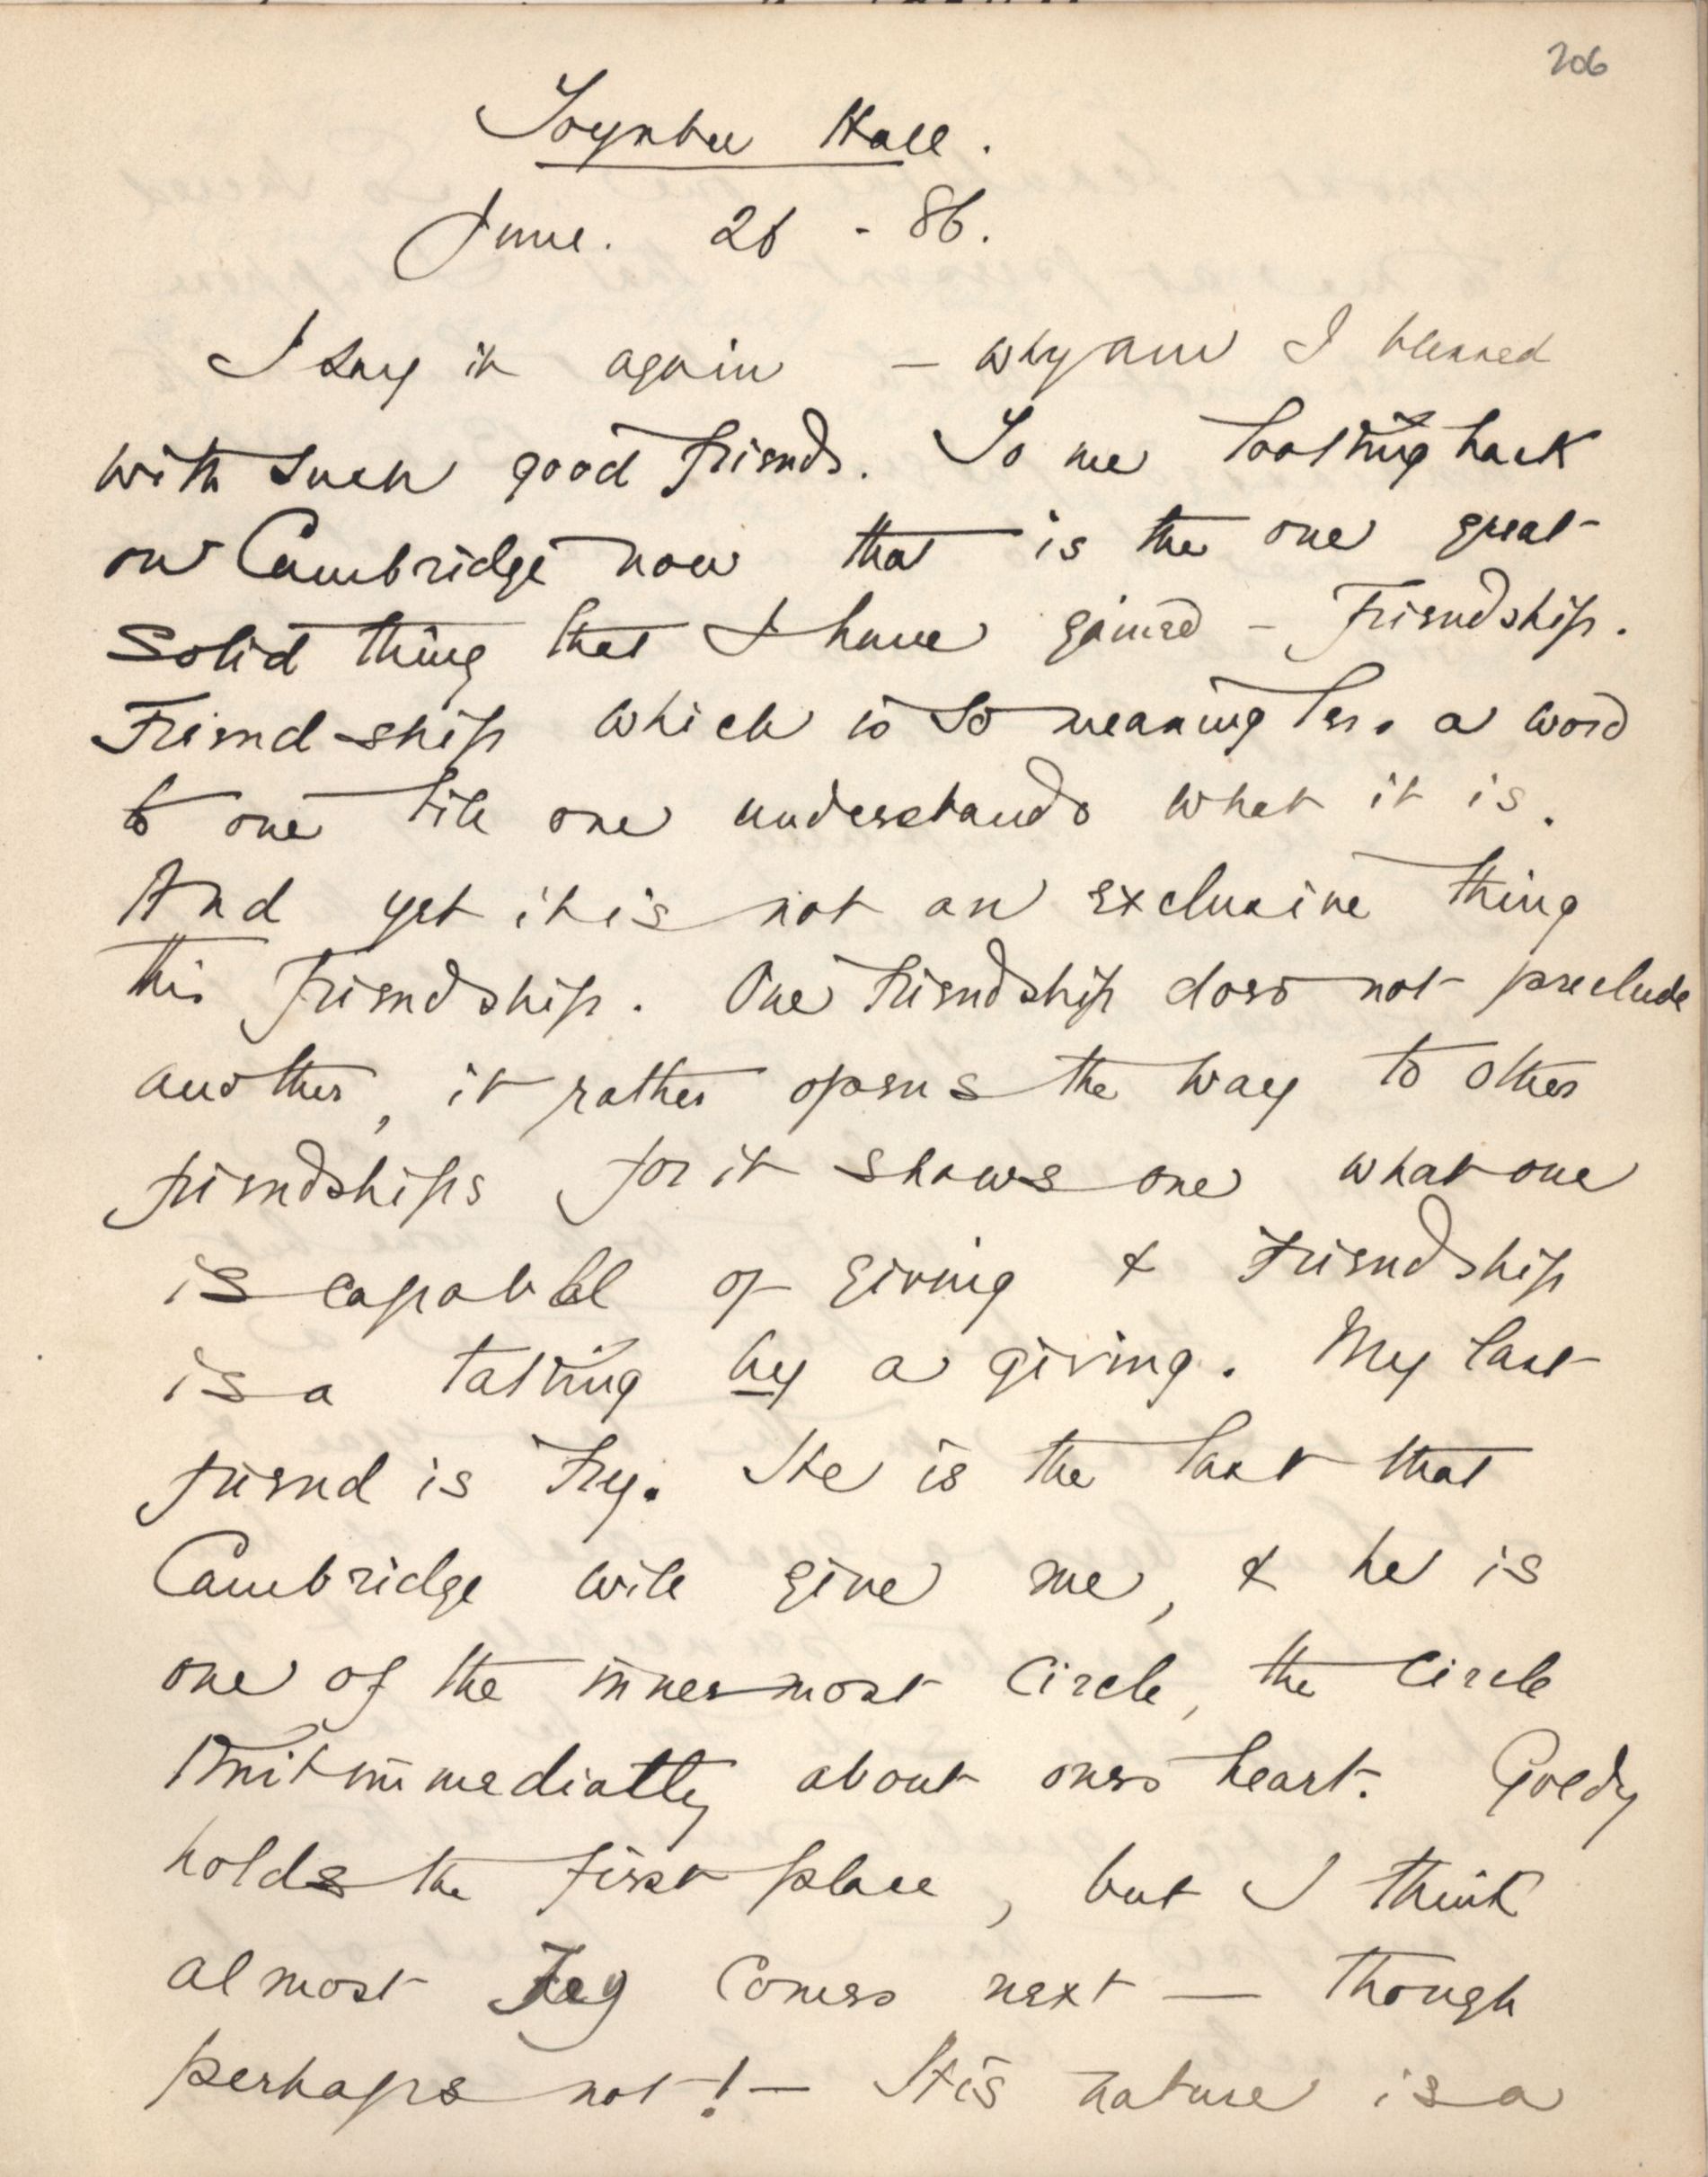 206
Toynbee Hall.
June. 26 - 86.
I say it again — why am I blessed
with such good friends. To me looking back
on Cambridge now that is the one great
solid thing that I have gained - Friendship.
Friendship which is so meaningless a word
to one till one understands what it is.
And yet it is not an exclusive thing
this friendship. One friendship does not preclude
another, it rather opens the way to other
friendships for it shows one what one
is capable of giving & friendship
is a taking by a giving. My last
friend is Fry. He is the last that
Cambridge will give me, & he is
one of the innermost circle, the circle
knit immediatly about ones heart. Goldy
holds the first place, but I think
almost Fry comes next — though
perhaps not! — His nature is a